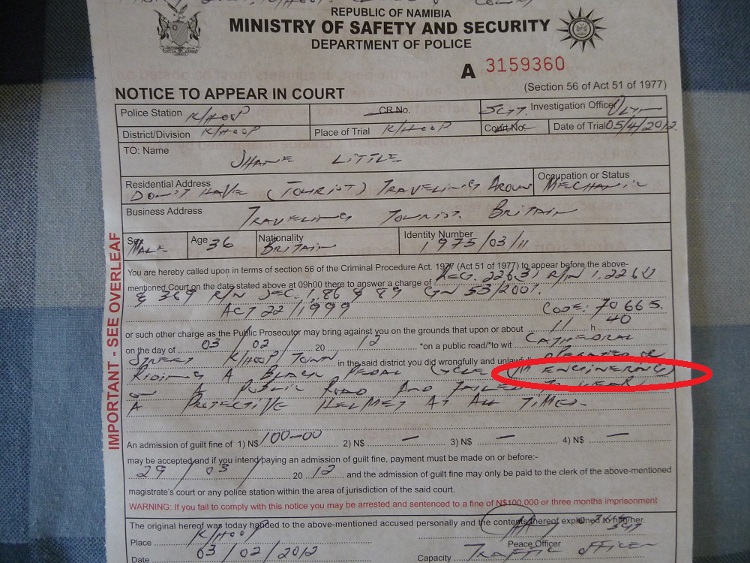 REPUBLIC OF NAMIBIA
MINISTRY OF SAFETY AND SECURITY
DEPARTMENT OF POLICE
A 3159360
NOTICE TO APPEAR IN COURT
(Section 56 of Act 51 of 1977)
Police Station K/HOOP CR No. Investigation Officer
District/Division K/HOOP Place of Trial K/HOOP Court No Date of Trial 05/4/2012
TO: Name SHANE LITTLE
Residential Address DON'T HAVE (TOURIST) TRAVELING AROUND
Occupation or Status MECHANIC
Business Address TRAVELING TOURIST. BRITAIN
Sex MALE Age 36 Nationality BRITAIN Identity Number 1975/03/11
You are hereby called upon in terms of section 56 of the Criminal Procedure Act. 1977 (Act 51 of 1977) to appear before the above-
mentioned Court on the date stated above at 09h00 there to answer a charge of REG. 226(3) R/N 1.2260
& 369 R/N SEC. 1.86 & 89 GN 53/2001.
ACT 22/1999 CODE: 70665.
or such other charge as the Public Prosecutor may bring against you on the grounds that upon or about 11 h 40
on the day of 03 / 02 / 20 12 *on a public road/*to wit CATHEDRAL
STREET K/HOOP TOWN in the said district you did wrongfully and OPERATE OR
RIDING A BLACK PEDAL CYCLE (M ENGINERING)
ON A PUBLIC ROAD AND FAILED TO WEAR
A PROTECTIVE HELMET AT ALL TIMES.
An admission of guilt fine of 1) N$ 100-00 2) N$ — 3) N$ — 4) N$ —
may be accepted and if you intend paying an admission of guilt fine, payment must be made on or before:-
29 / 03 / 20 12 and the admission of guilt fine may only be paid to the clerk of the above-mentioned
magistrate's court or any police station within the area of jurisdiction of the said court.
WARNING: If you fail to comply with this notice you may be arrested and sentenced to a fine of N$100,000 or three months imprisonment
The original hereof was today handed to the above-mentioned accused personally and the contents thereof explained to him/her.
Place K/HOOP Peace Officer
Date 03/02/2012 Capacity TRAFFIC OFFICER
IMPORTANT - SEE OVERLEAF